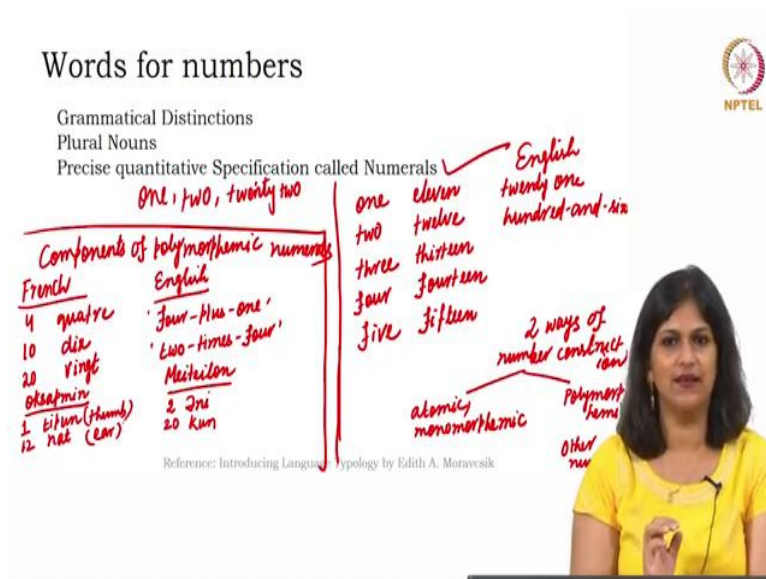 Words for numbers
NPTEL
Grammatical Distinctions
Plural Nouns
Precise quantitative Specification called Numerals
one, two, twenty two
Components of polymorphemic numerals
French
4 quatre
10 dix
20 vingt
Oksapmin
1 tipun (thumb)
12 nat (ear)
English
'four-plus-one'
'two-times-four'
Meiteilon
2 əni
20 kun
one eleven
two twelve
three thirteen
four fourteen
five fifteen
English
twenty one
hundred-and-six
2 ways of
number construct
ion
atomic,
monomorphemic
Polymorp
hemi
Other
nu
Reference: Introducing Language Typology by Edith A. Moravcsik